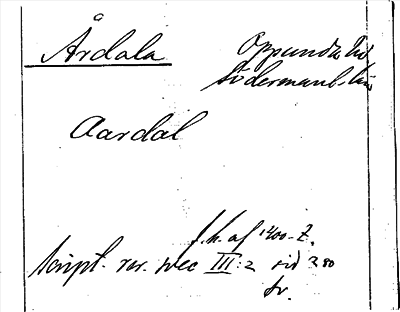 Årdala Oppunda hd
Södermanl. län
Aardal
f. h. af 1400-t.
Script. rer. svec III:2 sid 280